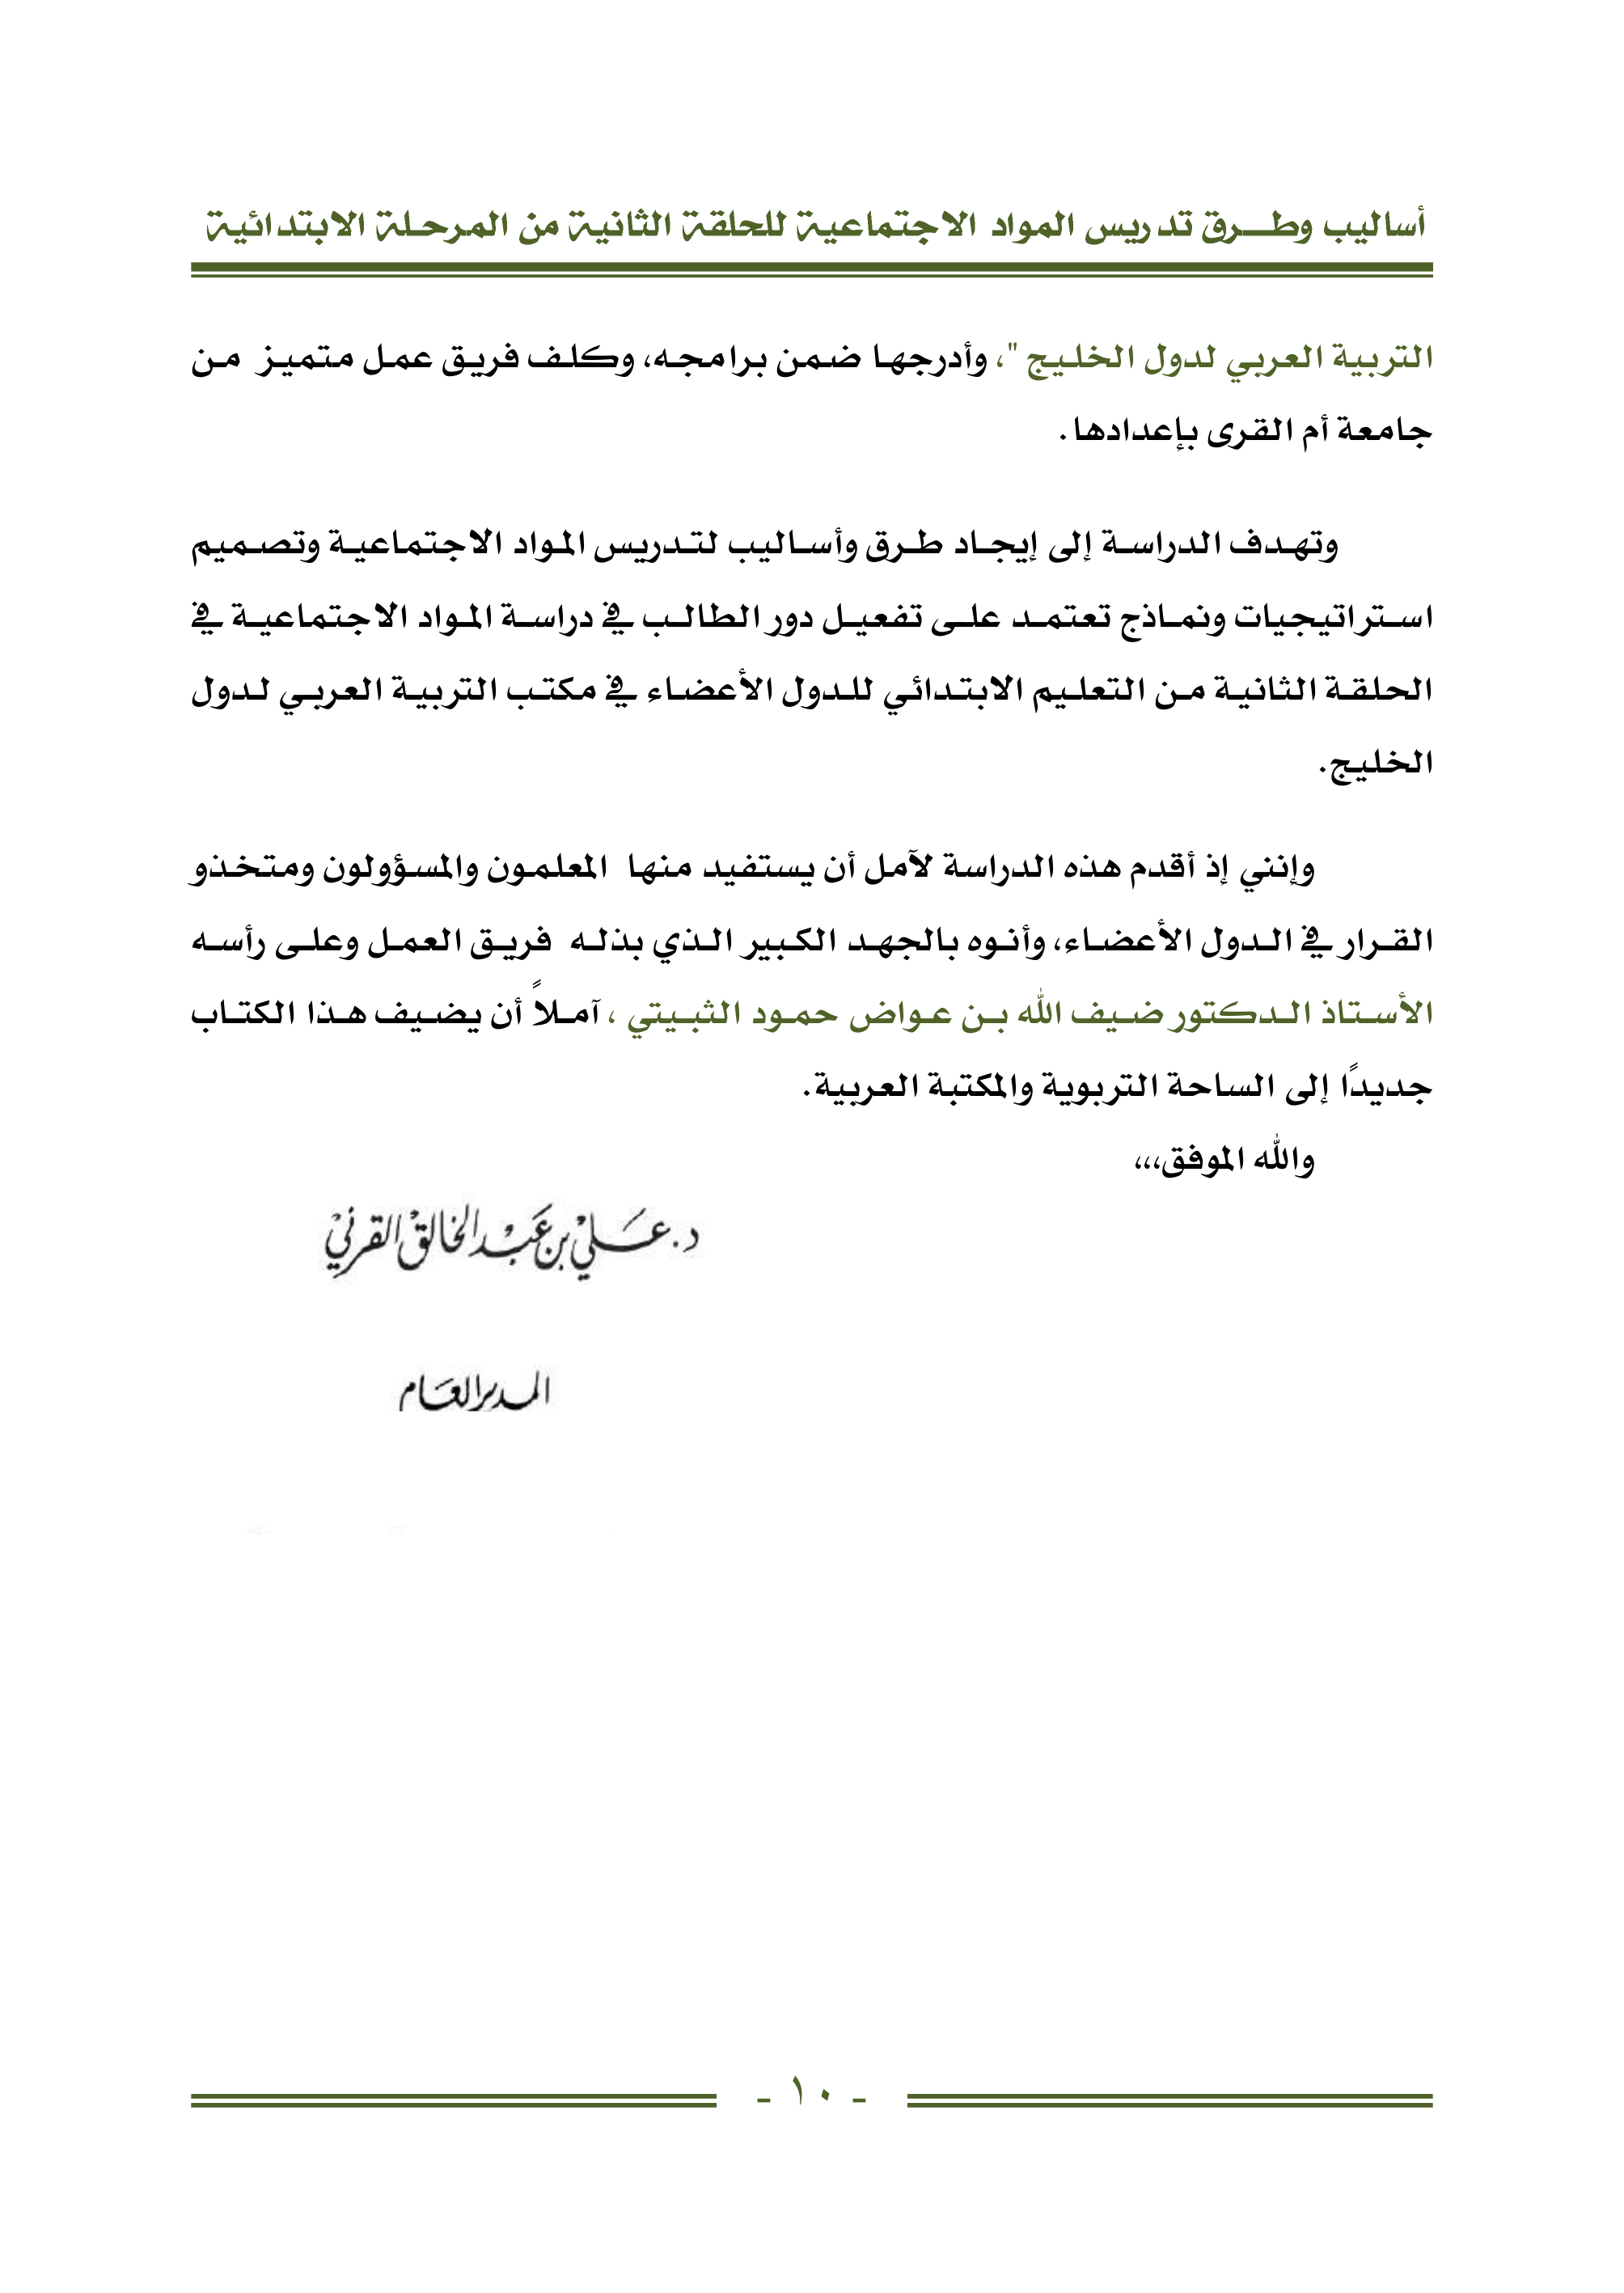 أساليب وطرق تدريس المواد الاجتماعية للحلقة الثانية من المرحلة الابتدائية
التربية العربي لدول الخليج "، وأدرجها ضمن برامجه، وكلف فريق عمل متميز من
جامعة أم القرى بإعدادها.
وتهدف الدراسة إلى إيجاد طرق وأساليب لتدريس المواد الاجتماعية وتصميم
استراتيجيات ونماذج تعتمد على تفعيل دور الطالب في دراسة المواد الاجتماعية في
الحلقة الثانية من التعليم الابتدائي للدول الأعضاء في مكتب التربية العربي لدول
الخليج.
وإنني إذ أقدم هذه الدراسة لآمل أن يستفيد منها المعلمون والمسؤولون ومتخذو
القرار في الدول الأعضاء، وأنوه بالجهد الكبير الذي بذله فريق العمل وعلى رأسه
الأستاذ الدكتور ضيف الله بن عواض حمود الثبيتي ، آملاً أن يضيف هذا الكتاب
جديدًا إلى الساحة التربوية والمكتبة العربية.
والله الموفق،،،
د. عَلي بن عَبد الخالق القرني
المدير العَام
- ١٠ -